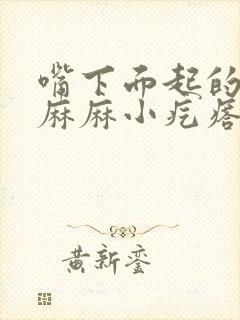 嘴下而起的
麻麻小疙瘩
黄新銮